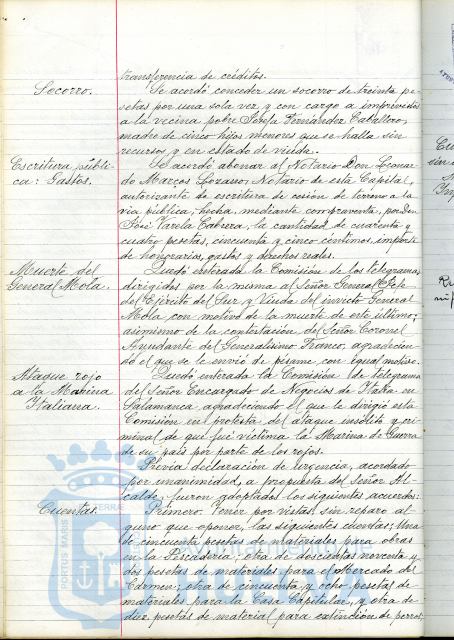 transferencia de créditos.
Socorro.
Se acordó conceder un socorro de treinta pe-
setas por una sola vez y con cargo a imprevistos
a la vecina pobre Josefa Fernández Caballero,
madre de cinco hijos menores que se halla sin
recursos y en estado de viuda.
Escritura públi-
ca: Gastos.
Se acordó abonar al Notario Don Leonar-
do Marcos Lozano, Notario de esta Capital,
autorizante de escritura de cesión de terreno a la
vía pública, hecha, mediante compraventa, por Don
José Varela Cabrera, la cantidad de cuarenta y
cuatro pesetas, cincuenta y cinco céntimos, importe
de honorarios, gastos y derechos reales.
Muerte del
General Mola.
Quedó enterada la Comisión de los telegramas
dirigidos por la misma al Señor General Jefe
del Ejército del Sur y Viuda del invicto General
Mola con motivo de la muerte de este último;
asimismo de la contestación del Señor Coronel
Ayudante del Generalísimo Franco, agradecien-
do el que se le envió de pésame con igual motivo.
Ataque rojo
a la Marina
Italiana.
Quedó enterada la Comisión de telegrama
del Señor Encargado de Negocios de Italia en
Salamanca, agradeciendo el que le dirigió esta
Comisión en protesta del ataque insólito y cri-
minal de que fué víctima la Marina de Guerra
de su país por parte de los rojos.
Previa declaración de urgencia, acordado
por unanimidad, a propuesta del Señor Al-
calde, fueron adoptados los siguientes acuerdos:
Cuentas.
Primero: Tener por vistas sin reparo al-
guno que oponer, las siguientes cuentas: Una
de cincuenta pesetas de materiales para obras
en la Pescadería; otra de doscientas noventa y
dos pesetas de materiales para el Mercado del
Carmen; otra de cincuenta y ocho pesetas de
materiales para la Casa Capitular, y otra de
diez pesetas de material para extinción de perros,
PORTUS MARIS
TERRAE